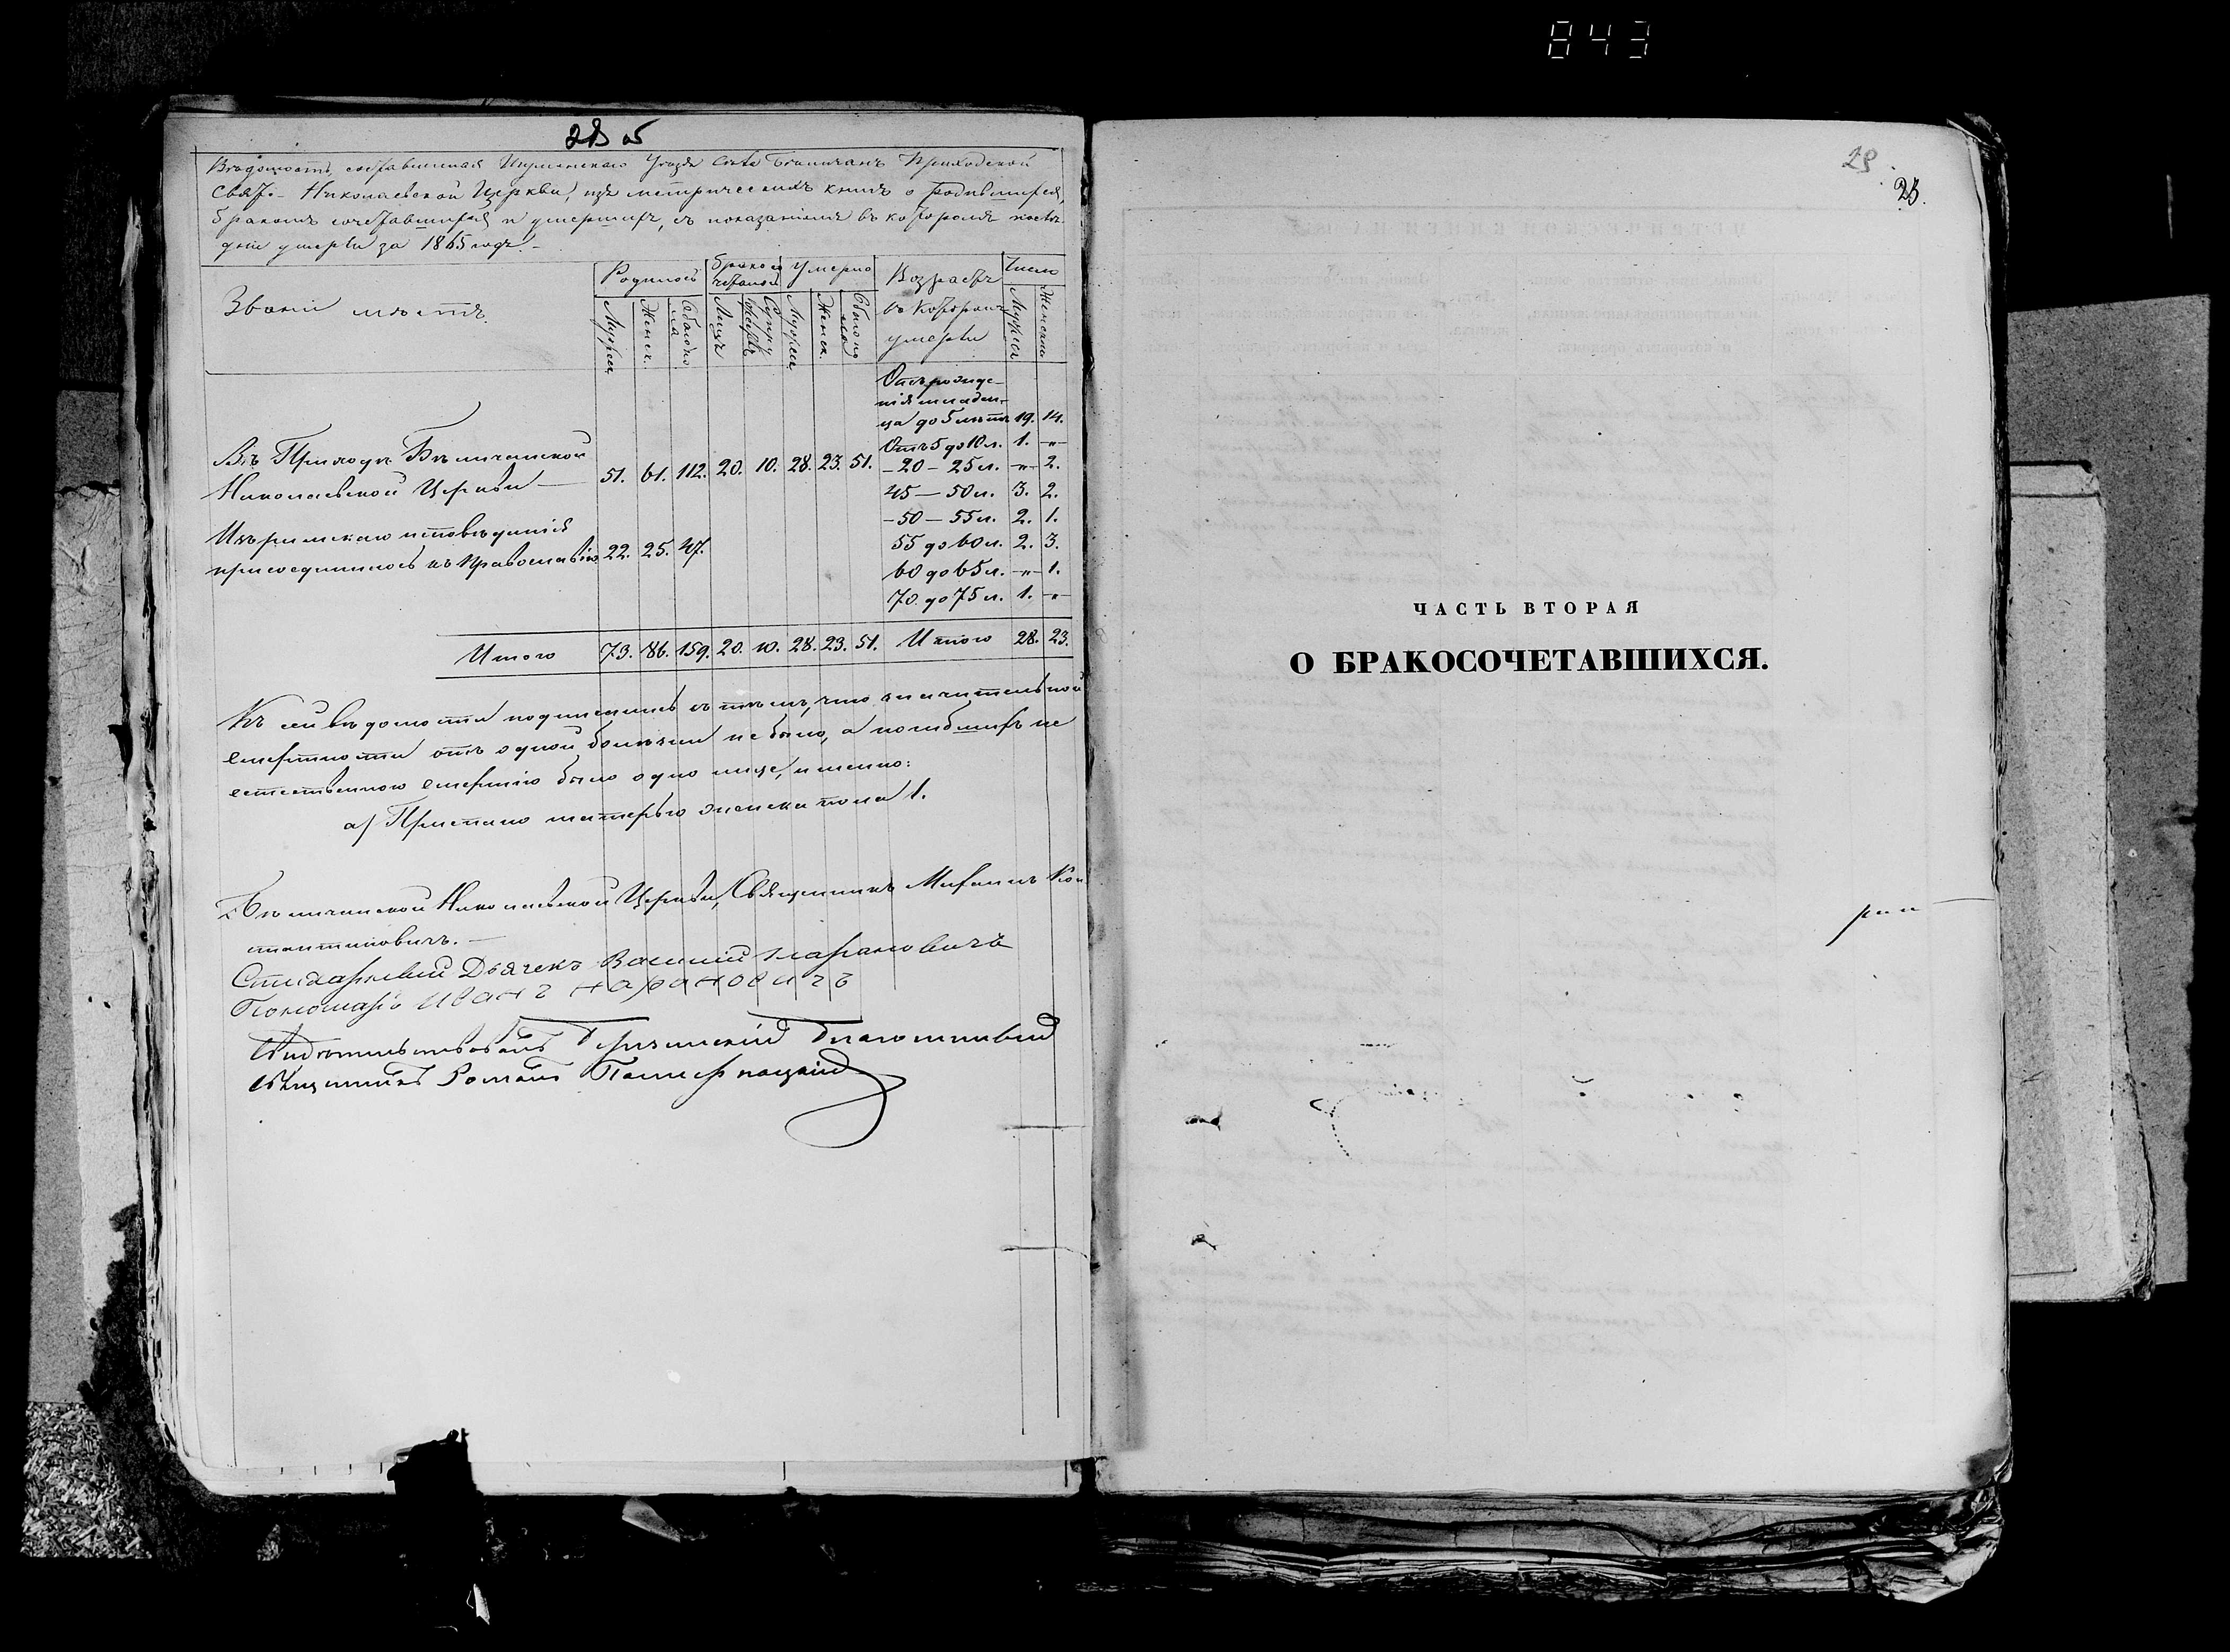 843
28 об
Вѣдомость, составленная Игуменскаго Уѣзда Села Бѣличанъ Приходской
Свято- Николаевской Церкви, изъ метрическихъ книгъ о родившихся,
бракомъ сочетавшихся и умершихъ, съ показаніемъ въ которомъ
умерли за 1865 годъ.-
Званіе мѣстъ.
Родилось
Бракосо-
четалось
Умерло
Возрастъ
въ которомъ
умерли
Число
Мужеск.
Женск.
Обоего
пола
Лицъ
Супру
жествъ
Мужеск.
Женск.
Обоего
пола
Мужеск.
Женска
Отъ рожде-
нія младен-
ца до 5 лѣтъ 19. 14.
Отъ 5 до 10 л. 1. -"-
Въ Приходѣ Бѣличанской
Николаевской Церкви — 51. 61. 112. 20. 10. 28. 23. 51.
- 20 - 25 л. -"- 2.
45 — 50 л. 3. 2.
Изъ римскаго исповѣданія
присоединилось къ Православію 22. 25. 47.
- 50 - 55 л. 2. 1.
55 до 60 л. 2. 3.
60 до 65 л. -"- 1.
70 до 75 л. 1. -"-
Итого 73. 86. 159. 20. 10. 28. 23. 51. Итого 28. 23.
Къ сей вѣдомости подписались съ тѣмъ, что значительной
смертности отъ одной болѣзни не было, а погибшихъ не
естественною смертію было одно лице, именно:
а) Приспано матерью женска пола 1.
Бѣличанской Николаевской Церкви, Священникъ Михаилъ Кон
стантиновичъ. —
Стихарный Дьячекъ Василій Нарановичъ
Пономарь Иванъ Нарановичъ
Свидѣтельствовалъ Благочинный
Священникъ Романъ
29
23.
ЧАСТЬ ВТОРАЯ
О БРАКОСОЧЕТАВШИХСЯ.